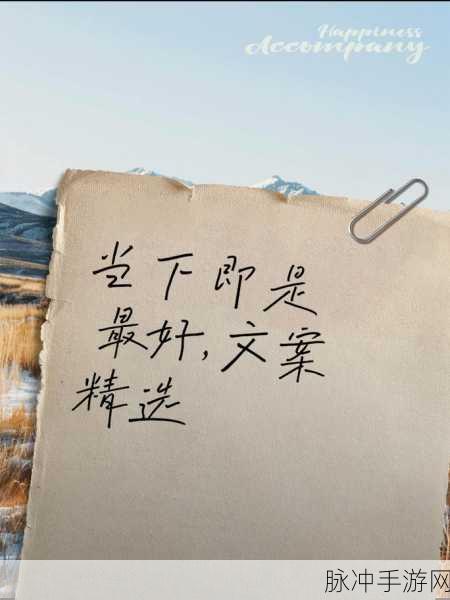 Happiness
Accompany
当下即是
最好,文案
精选
脉冲手游网